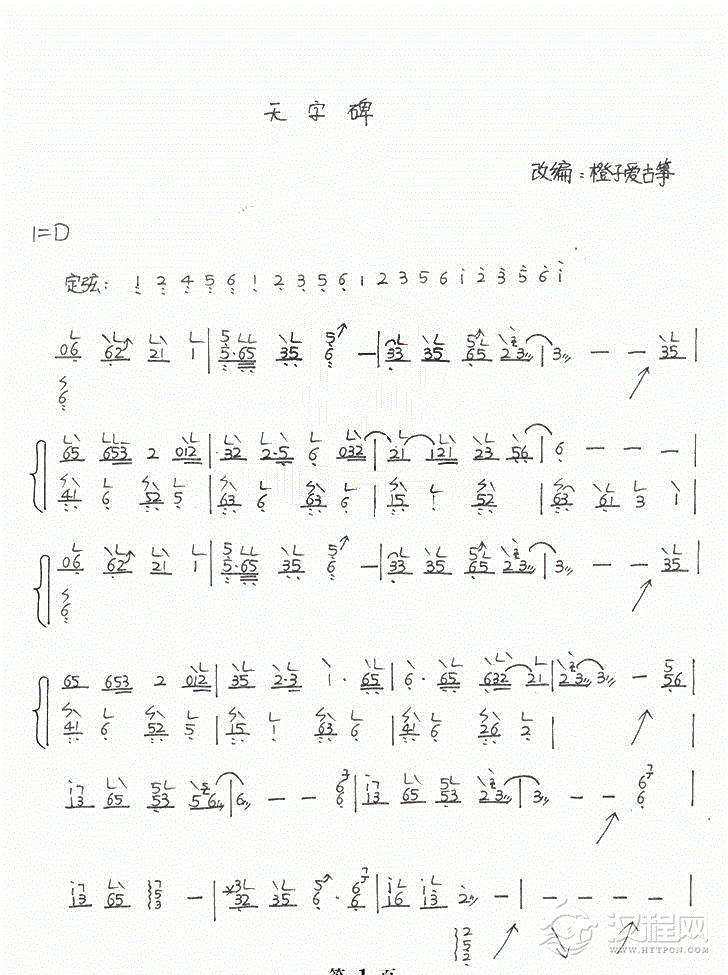 无字碑
改编:橙子爱古筝
1=D
定弦: 1 2 4 5 6 1 2 3 5 6 1 2 3 5 6 i 2 3 5 6 i
06 62 21 1 | 5 5·65 35 5 6 — | 33 35 5 65 2 3 | 3 — — 35 |
6
65 653 2 012 | 32 2·5 6 032 | 21 121 23 56 | 6 — — — |
41 6 52 5 | 63 6 63 6 | 15 1 52 | 63 61 3 1 |
06 62 21 1 | 5 5·65 35 5 6 — | 33 35 5 65 2 3 | 3 — — 35 |
6
65 653 2 012 | 35 2·3 1·65 | 6·65 632 21 | 2 3 3 — 5 56 |
41 6 52 5 | 15 1 63 6 | 41 6 26 2 |
i 13 65 5 53 5 6 | 6 — — 6 6 | i 13 65 5 53 2 3 | 3 — — 6 6 |
i 13 65 7 5 3 — | 3 32 35 5 6 · 6 6 | i i6 i i3 2 — | — — — — |
2 5 2 2
汉程网
WWW.HTTPCN.COM
第 1 页